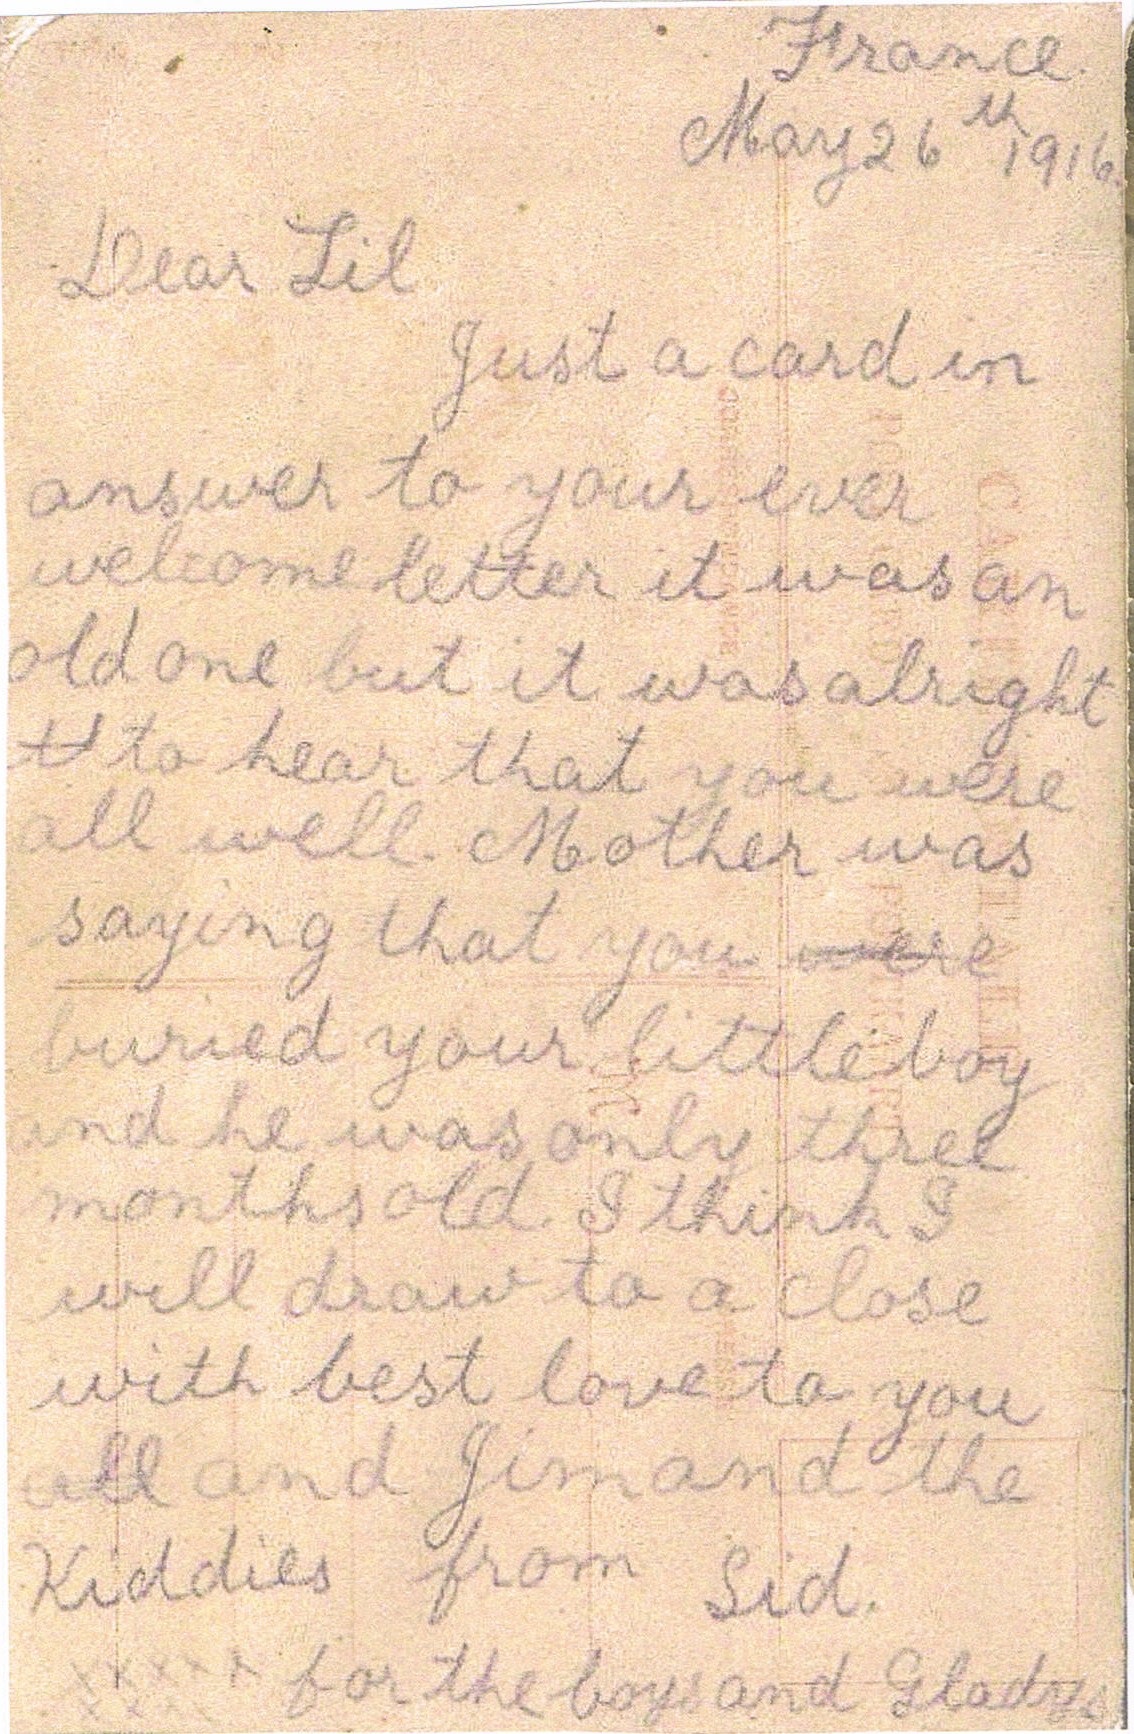 France.
May 26th 1916.
Dear Lil
Just a card in
answer to your ever
welcome letter it was an
old one but it was alright
tt to hear that you were
all well. Mother was
saying that you were
buried your little boy
and he was only three
months old. I think I
will draw to a close
with best love to you
all and Jim and the
Kiddies from Sid.
xxxxx for the boys and Gladys.
xxxx
CARTE POSTALE